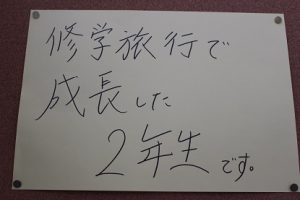 修学旅行で
成長した
2年生です。